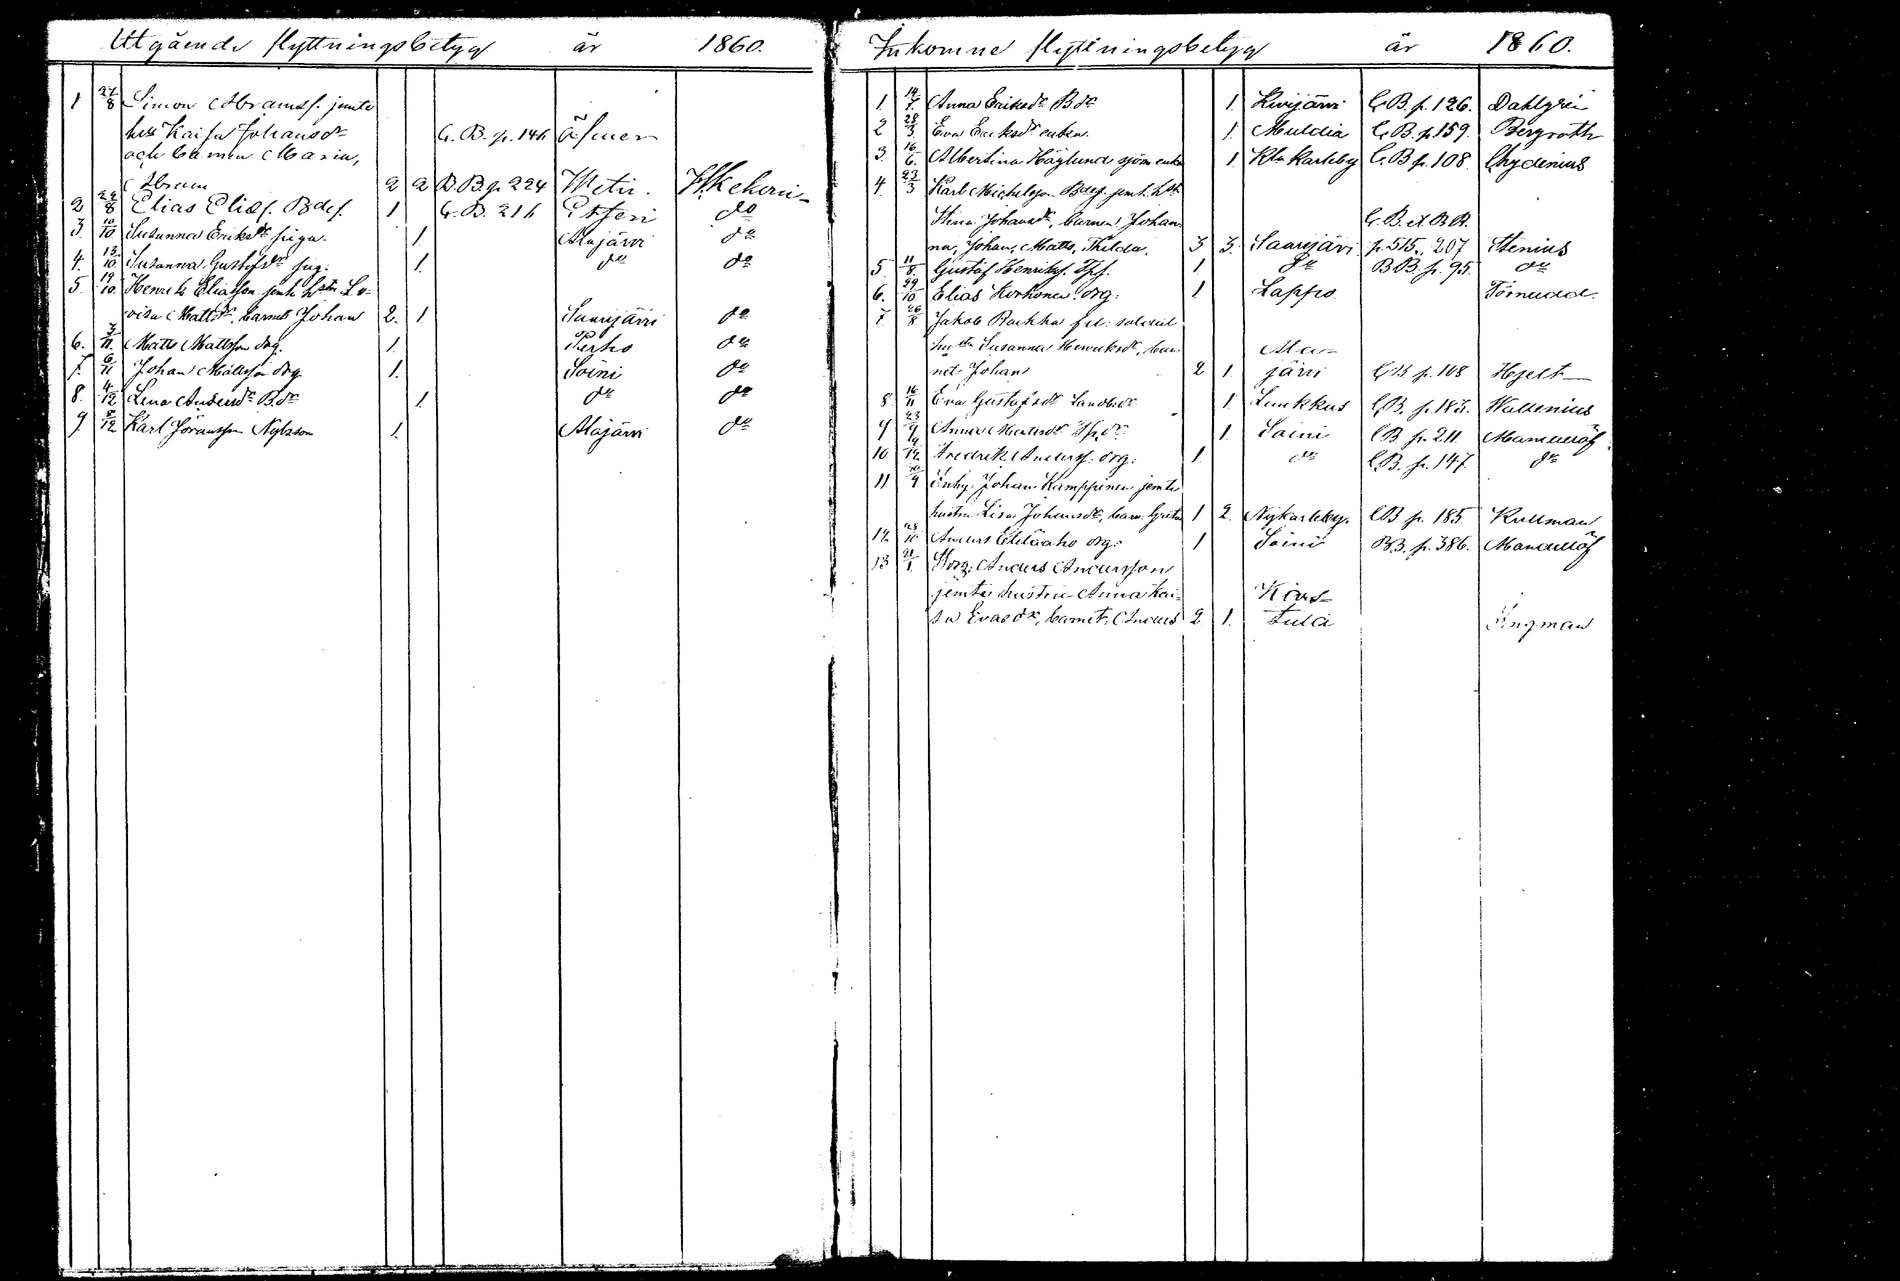 Utgående flyttningsbetyg år 1860.
1 27/8 Simon Abramss. jemte
hu Kaisa Johansdr C. B. p. 146
och barnen Maria,
Abram 2 2 B. B. p. 224
2 24/8 Elias Eliæs. Bdes. 1 C. B. 216 do
3. 10/10 Susanna Eriksdr piga. 1. Alajärvi do
4. 13/10 Susanna Gustafsdr pig. 1. do do
5. 19/10 Henrik Eliasson jemte hstr. Lo-
visa Mattsdr. barnet Johan 2. 1 Saarijärvi do
6. 3/11 Matts Mattsson drg. 1. Perho do
7. 6/11 Johan Mattsson drg. 1. Soini do
8. 4/12 Lena Andersdr B.dr 1. do do
9 8/12 Karl Göransson 1. Alajärvi do
Inkomne flyttningsbetyg år 1860.
1. 14/7 Anna Eriksdr Bdr 1. Kivijärvi C. B. p. 126. Dahlgren
2 28/3 Eva Eriksdr enkan 1. Multia C. B. p. 159. Bergroth
3. 16/6 Albertina Höglund sjöm. enka 1. Kla Karleby C. B. p. 108 Chydenius
4. 23/3 Karl Michelsson Bdes. jemt. hstr
Stina Johansdr, barnen Johan- C. B. et B. B.
na, Johan, Matts, Thilda. 3 3. Saarijärvi p. 515, 207 Stenius
5. 11/8 Gustaf Henrikss. Tps. 1 do B. B. p. 95. do
6. 29/10 Elias Korhonen drg: 1 Lappo Törnudd.
7 26/8 Jakob fd: soldat
hu Susanna Henriksdr, bar- Ala-
net Johan 2 1. järvi C. B. p. 108 Hjelt
8 16/11 Eva Gustafsdr 1. C. B. p. 183. Waldenius
9 23/9 Anna Mattsdr 1. Soini C. B. p. 211.
10 Fredrik Anderss. drg: 1. do C. B. p. 147. do
11 Inhy. Johan Kamppinen jemte
hustru Lisa Johansdr, barn Greta 1 2. Nykarleby. C. B. p. 185 Kullman
12. Anders Eteläaho drg: 1 Soini B. B. p. 386.
13 21/1 Anders Andersson
jemte hustru Anna Kai- Kivi-
sa Evasdr, barnet Anders 2 1. Ingman